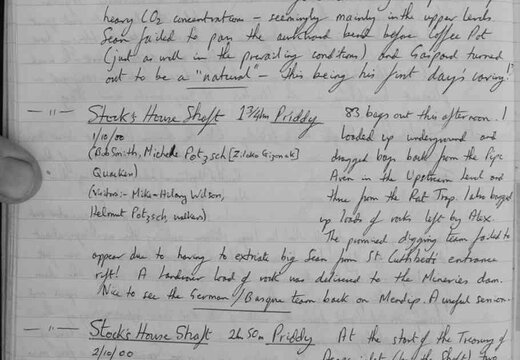 heavy CO2 concentrations - seemingly mainly in the upper levels.
Sean failed to pass the awkward bend before Coffee Pot
(just as well in the prevailing conditions) and Gaspard turned
out to be a "natural" - this being his first day's caving!
— " — Stock's House Shaft 1 3/4 hrs Priddy 83 bags out this afternoon. I
1/10/00 loaded up underground and
(Bob Smith, Michele Potzsch [Ziloko Gizonak] dragged bags back from the Pipe
Quacken) Aven in the Upstream Level and
(Visitors:- Mike + Hilary Wilson, three from the Rat Trap. I also bagged
Helmut Potzsch, walkers) up loads of rocks left by Alex.
The promised digging team failed to
appear due to having to extricate big Sean from St. Cuthbert's entrance
rift! A landrover load of rock was delivered to the Mineries dam.
Nice to see the German/Basque team back on Mendip. A useful session.
— " — Stock's House Shaft 2h 50m Priddy At the start of the Treasury of
2/10/00